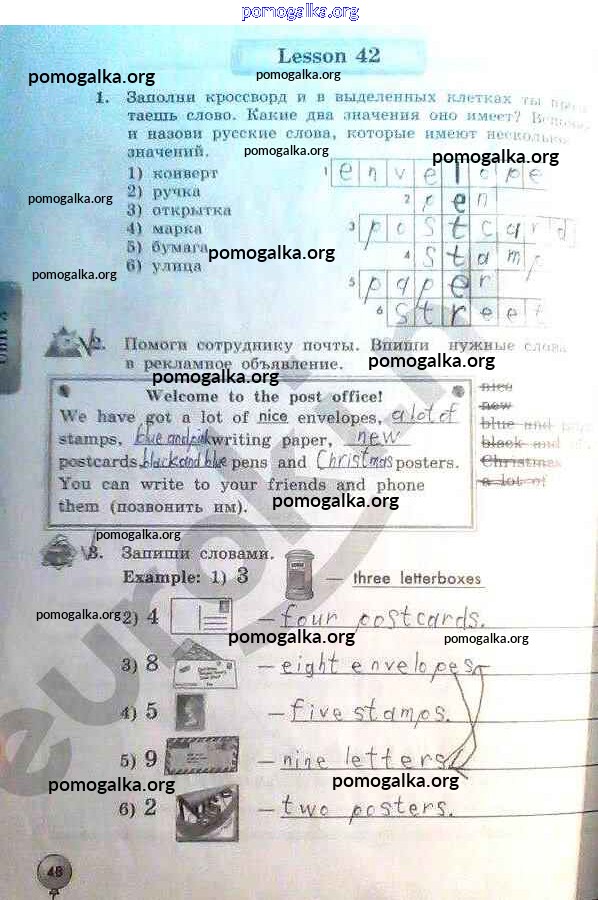 pomogalka.org
Lesson 42
pomogalka.org pomogalka.org
1. Заполни кроссворд и в выделенных клетках ты
таешь слово. Какие два значения оно имеет?
и назови русские слова, которые имеют несколько
значений. pomogalka.org pomogalka.org
1) конверт 1 envelope
2) ручка 2 pen
pomogalka.org
3) открытка 3 postcard
4) марка 4 stamp
5) бумага pomogalka.org 5 paper
6) улица 6 street
pomogalka.org
Unit 3
2. Помоги сотруднику почты. Впиши нужные слова
в рекламное объявление. pomogalka.org
pomogalka.org
Welcome to the post office! nice
We have got a lot of nice envelopes, a lot of new
stamps, blue and pink writing paper, new blue and
postcards, black and blue pens and Christmas posters. black and
You can write to your friends and phone Christmas
them (позвонить им). a lot of
pomogalka.org
pomogalka.org
3. Запиши словами.
Example: 1) 3 — three letterboxes
pomogalka.org
2) 4 — four postcards.
pomogalka.org pomogalka.org
3) 8 — eight envelopes.
4) 5 — five stamps.
5) 9 — nine letters
pomogalka.org pomogalka.org
6) 2 — two posters.
48
euroki